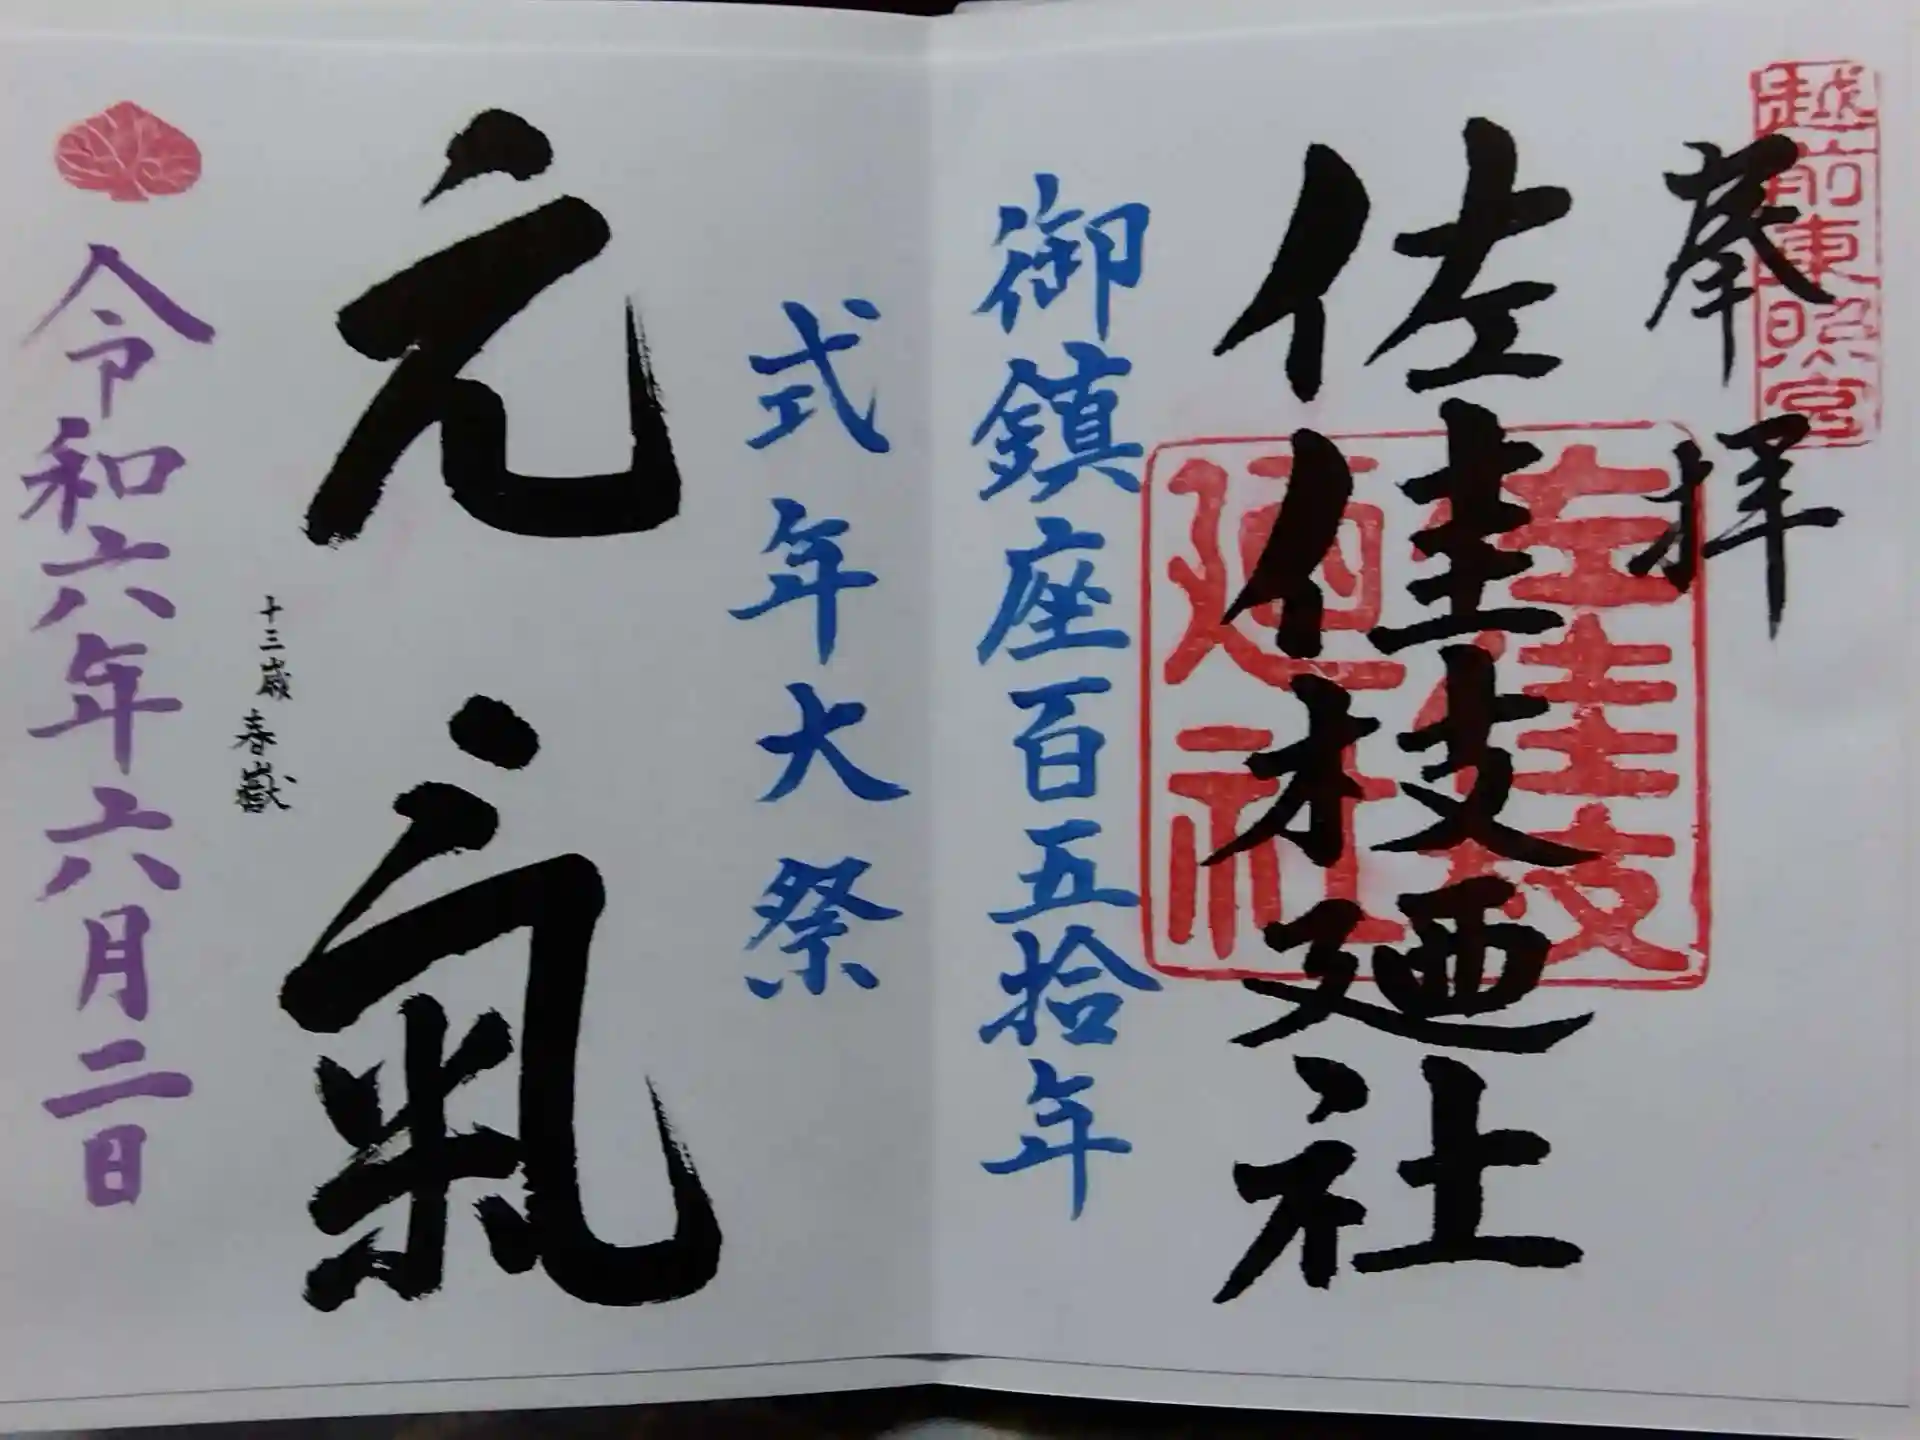 越前東照宮
奉拝
佐佳枝廼社
佐佳枝廼社
御鎮座百五拾年
式年大祭
元氣
十三歳 春嶽
令和六年六月二日